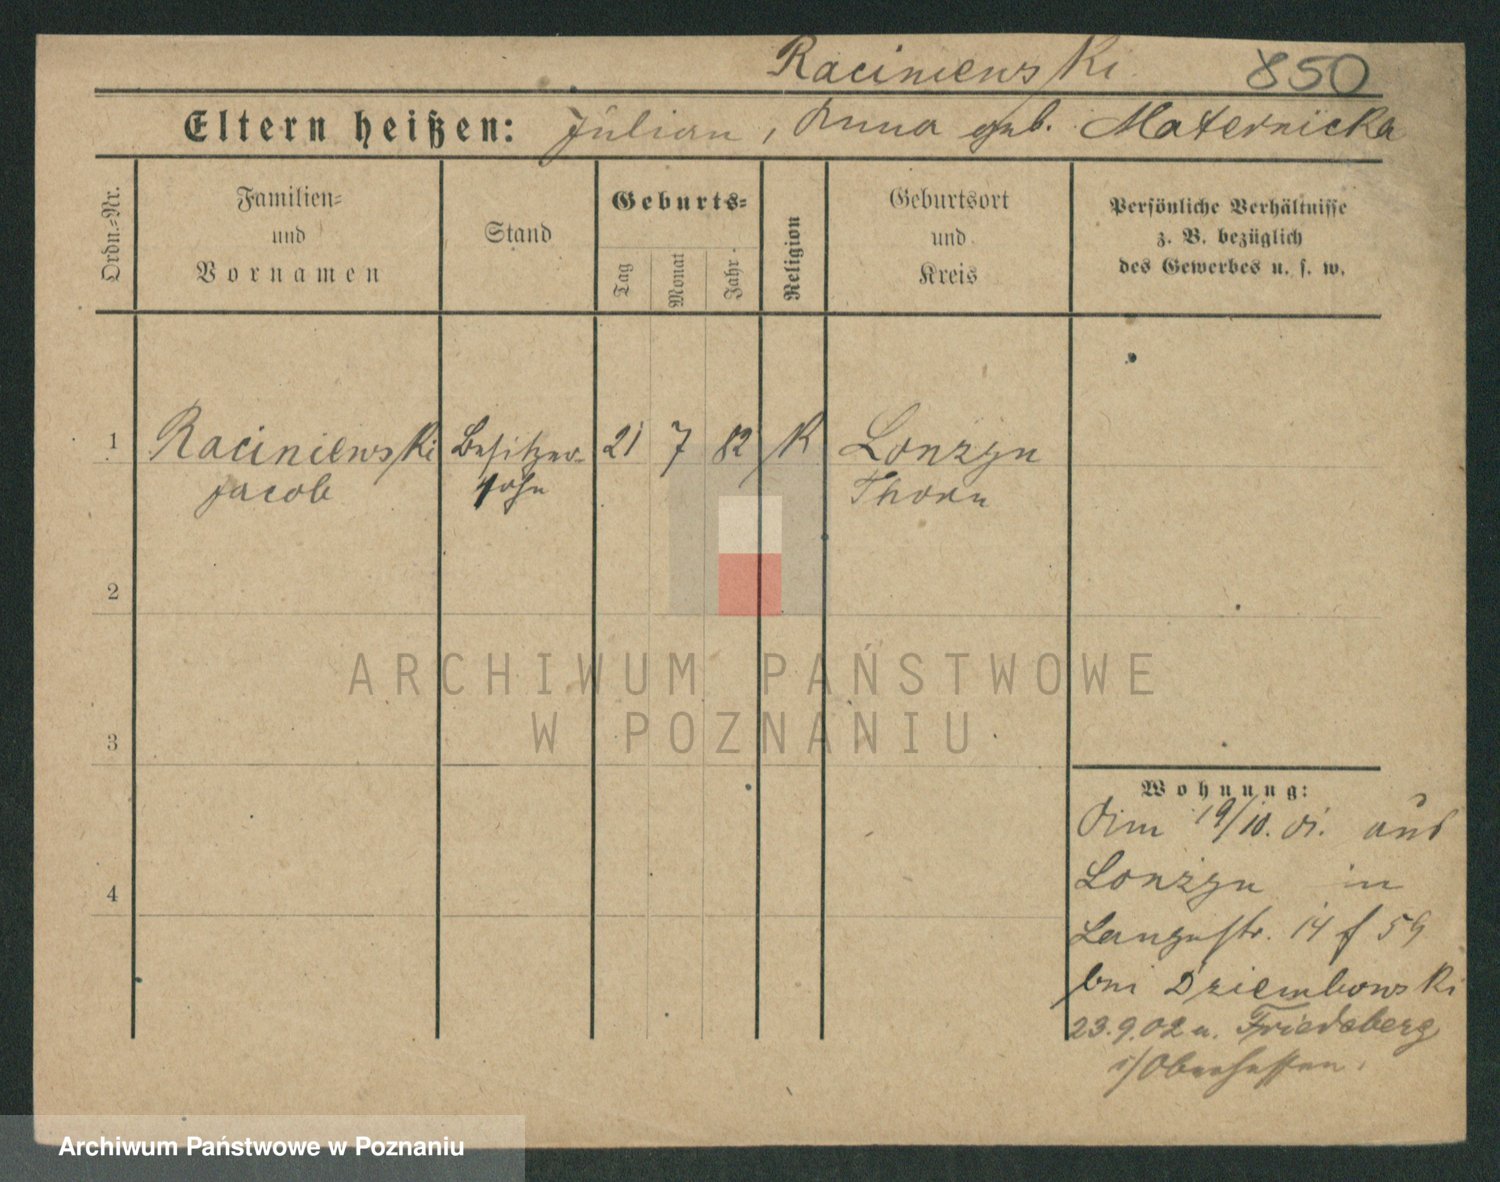 Raciniewski 850
Eltern heißen: Julian, Anna geb. Maternicka
Ordn.=Nr.
Familien=
und
Vornamen
Stand
Geburts=
Tag
Monat
Jahr
Religion
Geburtsort
und
Kreis
Persönliche Verhältnisse
z. B. bezüglich
des Gewerbes u. s. w.
1 Raciniewski Besitzer- 21 7 82 K Lonzyn
Jacob sohn Thorn
2
3
4
ARCHIWUM PAŃSTWOWE
W POZNANIU
Wohnung:
19/10. 01. aus
Lonzyn in
Langestr. 14 59
bei Dziembowski
23.9.02 n. Friedeberg
i/Oberhessen.
Archiwum Państwowe w Poznaniu